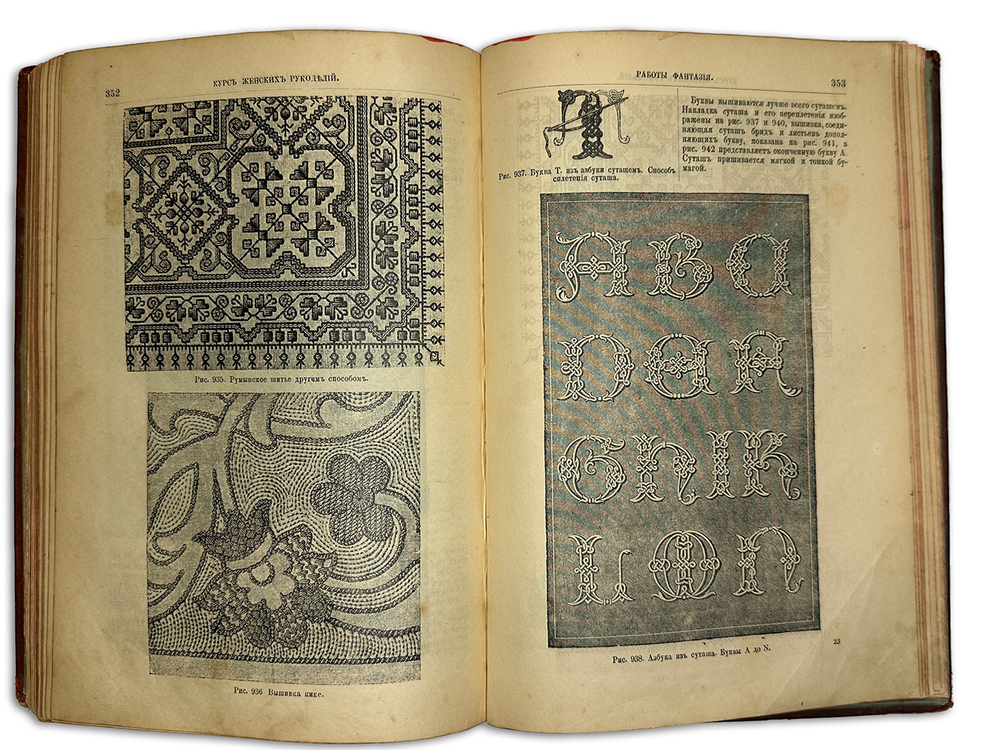 352
КУРСЪ ЖЕНСКИХЪ РУКОДѢЛІЙ.
Рис. 935. Румынское шитье другимъ способомъ.
Рис. 936 Вышивка пике.
РАБОТЫ ФАНТАЗІЯ.
353
Т
Рис. 937. Буква Т. изъ азбуки суташемъ. Способъ
сплетенія суташа.
Буквы вышиваются лучше всего суташемъ.
Накладка суташа и его переплетенія изоб-
ражены на рис. 937 и 940, вышивка, соеди-
няющая суташъ бридъ и листьевъ допол-
няющихъ букву, показана на рис. 941, а
рис. 942 представляетъ оконченную букву А.
Суташъ пришивается мягкой и тонкой бу-
магой.
A B C
D E F
G H I K
L M N
Рис. 938. Азбука изъ суташа. Буквы А до N.
23